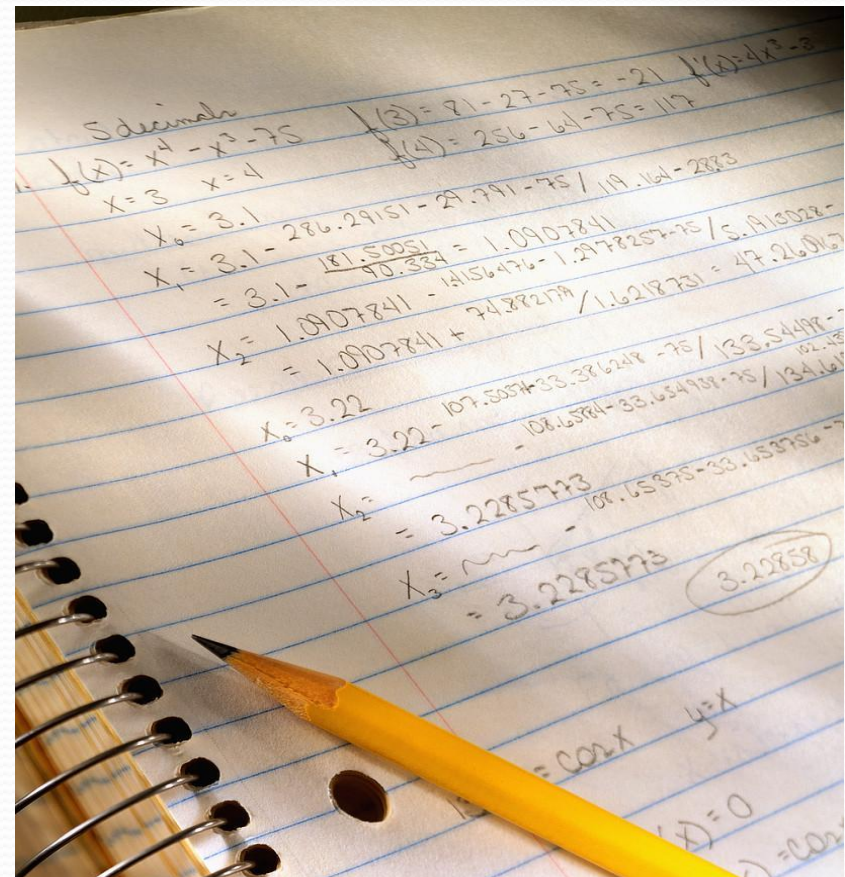 5 decimals
1. f(x) = x⁴ - x³ - 75 f(3) = 81 - 27 - 75 = -21 f'(x) = 4x³ - 3
x = 3 x = 4 f(4) = 256 - 64 - 75 = 117
X₀ = 3.1
X₁ = 3.1 - 286.29151 - 29.791 - 75 / 119.164 - 28.83
= 3.1 - 181.50051 / 90.334 = 1.0907841
X₂ = 1.0907841 - 1.4156476 - 1.2978257 - 75 / 5.1913028 -
= 1.0907841 + 74.882179 / 1.6218731 = 47.260167
X₀ = 3.22
X₁ = 3.22 - 107.5037 - 33.386248 - 75 / 133.54498 -
X₂ = - 108.65884 - 33.654938 - 75 / 134.61
= 3.2285773
X₃ = - 108.65375 - 33.653756 - 7
= 3.2285773 3.22858
= cos x y = x
(x) = 0
) = cos